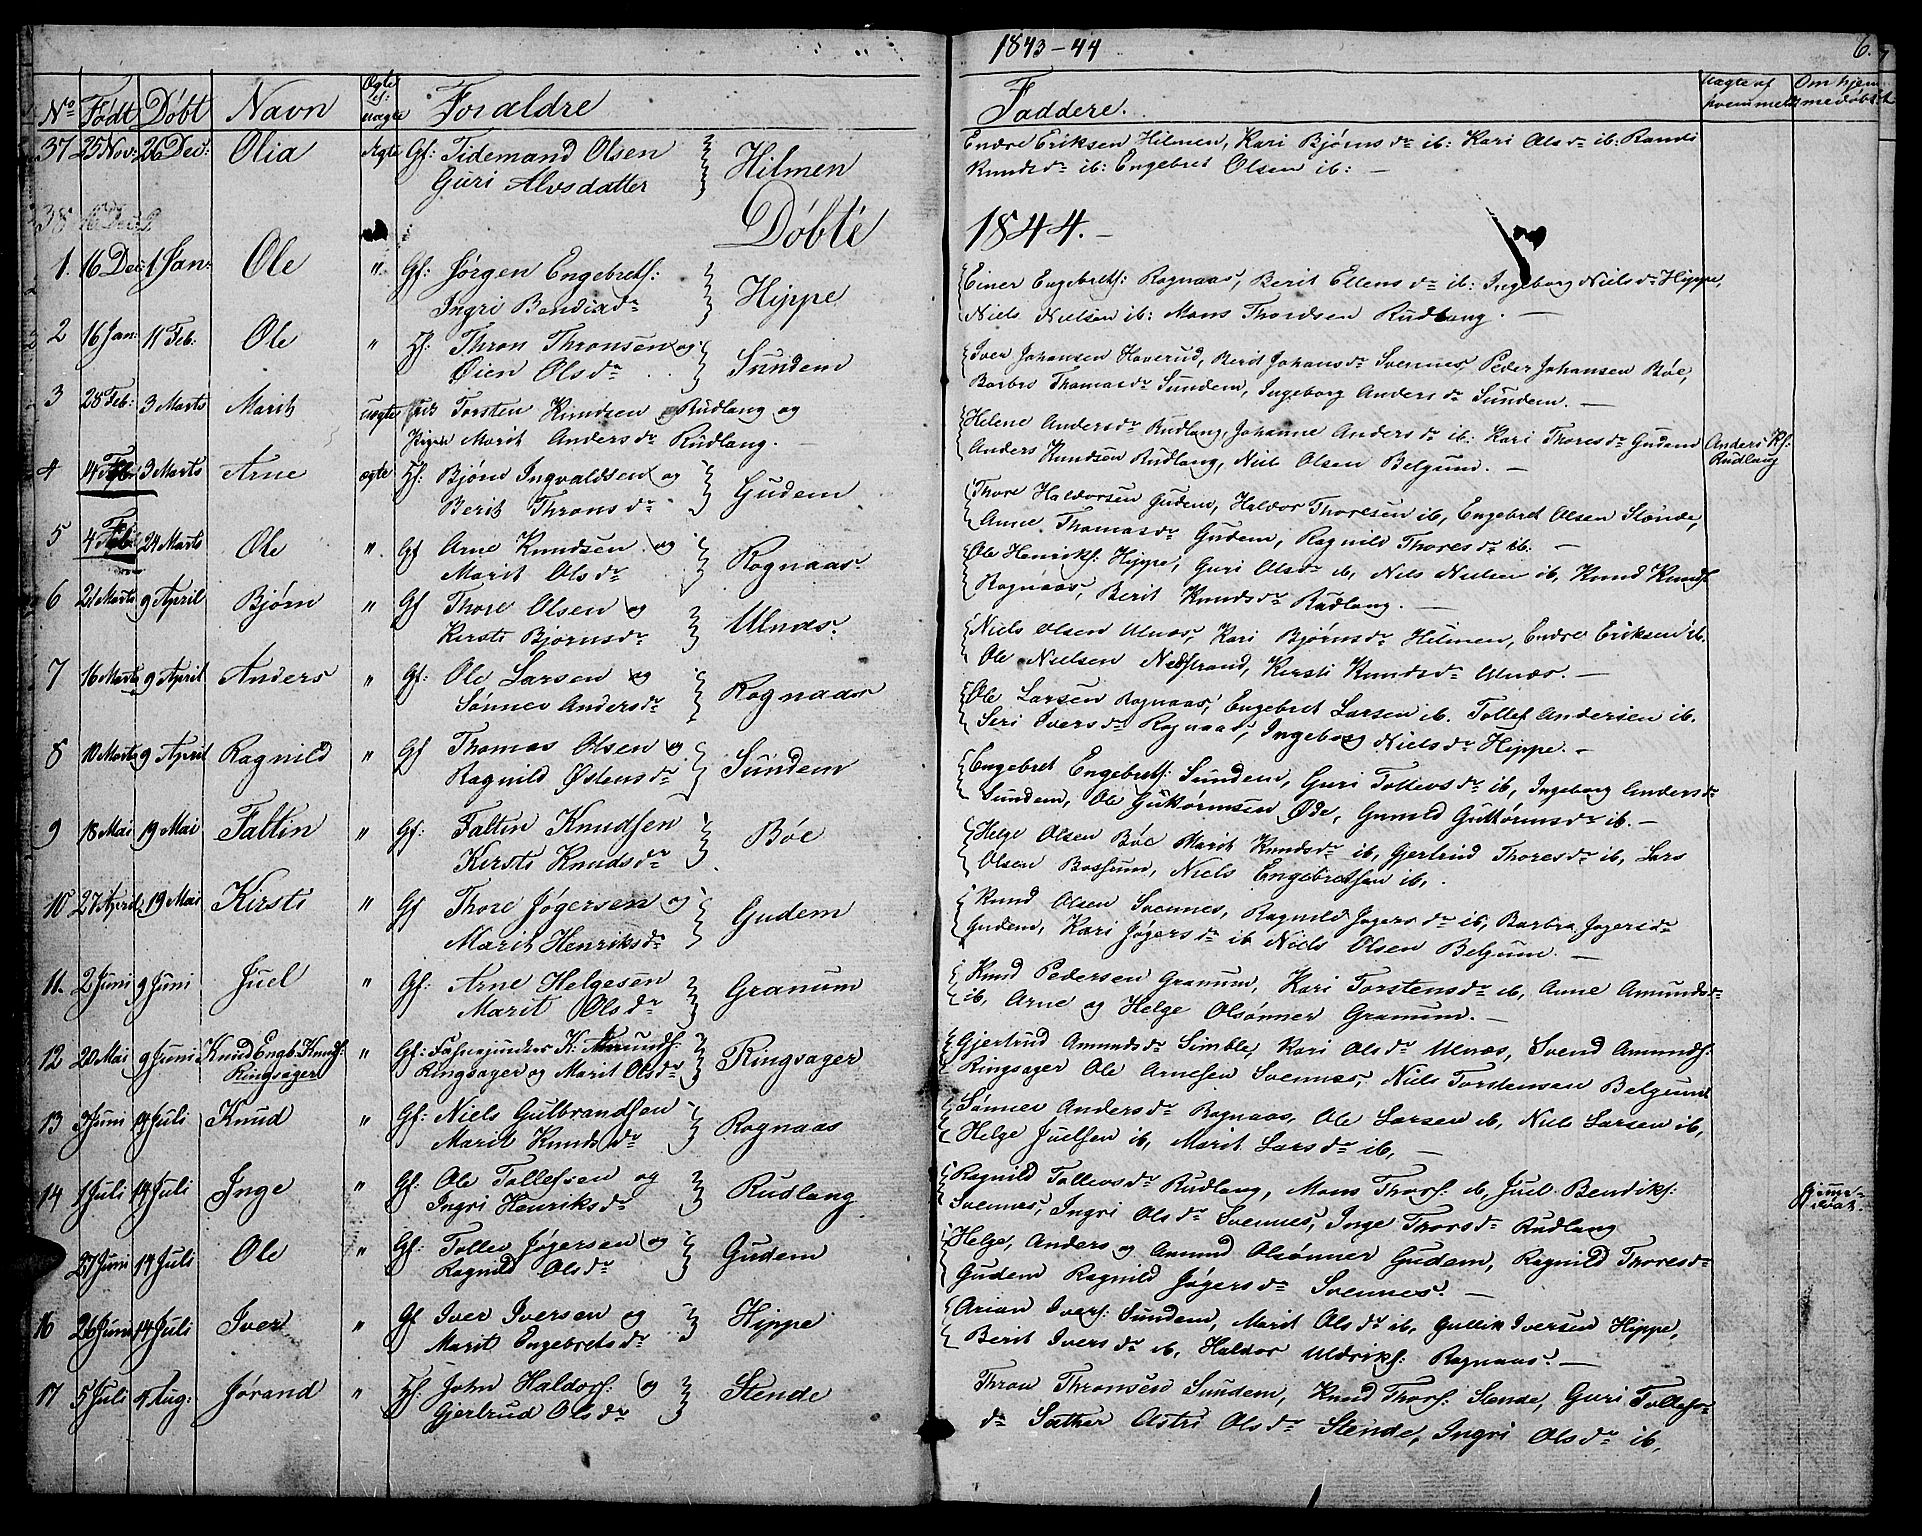 1843-44
6.
No Født Døbt Navn Ægte el: uægte Foraldre
Faddere.
37 25 Nov: 26 Dec: Olia ægte Gf: Tidemand Olsen
Guri Alvsdatter Hilmen
Endre Eriksen Hilmen, Kari Bjørnsdr ib: Kari Olsdr ib: Randi
Knudsdr ib: Engebret Olsen ib: —
38 16 Dec
Døbte 1844. —
1. 16 Dec: 1 Jan: Ole " Gf: Jørgen Engebretf:
Ingri Bendixdr Hippe
Einer Engebretf: Rognaas, Berit Ellensdr ib: Ingeborg Nielsdr Hippe,
Niels Nielsen ib: Mons Thordsen Rudlang. —
2 16 Jan: 11 Feb: Ole " Hf: Thron Thronsen og
Øien Olsdr Sundem
Iver Johansen Haverud, Berit Johansdr Svennes, Peder Johansen Bøe,
Barbro Thomasdr Sundem, Ingeborg Andersdr Sundem. —
3 28 Feb: 3 Marts Marit uægte Torsten Knudsen Rudlang og
Pigen Marit Andersdr Rudlang. —
Helene Andersdr Rudlang, Johanne Andersdr ib: Kari Thoresdr Gudem
Anders Knudsen Rudlang, Niels Olsen Belgum. —
Anders Kf:
Rudlang
4 14 Feb 3 Marts Arne ægte Hf: Bjørn Ingvaldsen og
Berit Thronsdr Gudem
Thore Haldorsen Gudem, Haldor Thoresen ib, Engebret Olsen Stende,
Anne Thomasdr Gudem, Ragnild Thoresdr ib. —
5 4 Feb 24 Marts Ole " Gf Arne Knudsen og
Marit Olsdr Rognaas.
Ole Henrikf: Hippe, Guri Olsdr ib, Niels Nielsen ib, Knud Knudf
Rognaas, Berit Knudsdr Rudlang. —
6 21 Marts 9 April Bjørn " Gf Thore Olsen og
Kersti Bjørnsdr Ulnæs.
Niels Olsen Ulnæs, Kari Bjørnsdr Hilmen, Endre Eriksen ib.
Ole Nielsen Nedstrand, Kersti Knudsdr Ulnæs. —
7 16 Marts 9 April Anders " Gf: Ole Larsen og
Sønnev Andersdr Rognaas
Ole Larsen Rognaas, Engebret Larsen ib. Tollef Andersen ib.
Seri Iversdr Rognaas, Ingeborg Nielsdr Hippe. —
8 10 Marts 9 April Ragnild " Gf Thomas Olsen og
Ragnild Østensdr Sundem
Engebret Engebretf: Sundem, Guri Tollevsdr ib, Ingeborg Andersdr
Sundem, Ole Guttormsen Øde, Gunild Guttormsdr ib. —
9 18 Mai 19 Mai Faltin " Gf: Faltin Knudsen
Kersti Knudsdr Bøe
Helge Olsen Bøe Marit Knudsdr ib, Gjertrud Thoresdr ib, Lars
Olsen Bossum, Niels Engebretsen ib.
10 27 April 19 Mai Kirsti " Gf Thore Jøgersen og
Marit Henriksdr Gudem
Knud Olsen Svennes, Ragnild Jøgersdr ib, Barbra Jøgersdr
Gudem, Kari Jøgersdr ib Niels Olsen Belgum. —
11. 2 Juni 9 Juni Juel " Gf: Arne Helgesen
Marit Olsdr Granum
Knud Pedersen Granum, Kari Torstensdr ib, Anne Amundsdr
ib, Arne og Helge Olsønner Granum. —
12 20 Mai 9 Juni Knud Engb: Knudf:
Ringsager " Gf: Fahnejunker K: Amundf:
Ringsager og Marit Olsdr Ringsager
Gjertrud Amundsdr Simble, Kari Olsdr Ulnæs, Svend Amundf:
Ringsager Ole Arnesen Svennes, Niels Torstensen Belgum
13 3 Juni 14 Juli Knud " Gf: Niels Gulbrandsen
Marit Knudsdr Rognaas
Sønnev Andersdr Rognaas, Ole Larsen ib, Niels Larsen ib,
Helge Juelsen ib, Marit Larsdr ib, —
14 1 Juli 14 Juli Inge " Gf: Ole Tollefsen og
Ingri Henriksdr Rudlang
Ragnild Tollevsdr Rudlang, Mons Thorf: ib, Juel Bendikf:
Svennes, Ingri Olsdr Svennes, Inge Thorsdr Rudlang
27 Juni 14 Juli Ole " Gf: Tollev Jøgersen og
Ragnild Olsdr Gudem
Helge, Anders og Amund Olsønner Gudem, Ragnild Thoresdr
Gudem Ragnild Jøgersdr Svennes. —
16 26 Juni 14 Juli Iver " Gf Iver Iversen og
Marit Engebretsdr Hippe
Arian Iverf: Sundem, Marit Olsdr ib, Gullik Iversen Hippe,
Berit Iversdr ib, Haldor Uldrikf: Rognaas. —
17 5 Juli 4 Aug: Jørand " Hf: John Haldorf: og
Gjertrud Olsdr Stende
Thron Thronsen Sundem, Knud Thorf: Stende, Guri Tollefs
dr Sæther Astri Olsdr Stende, Ingri Olsdr ib.